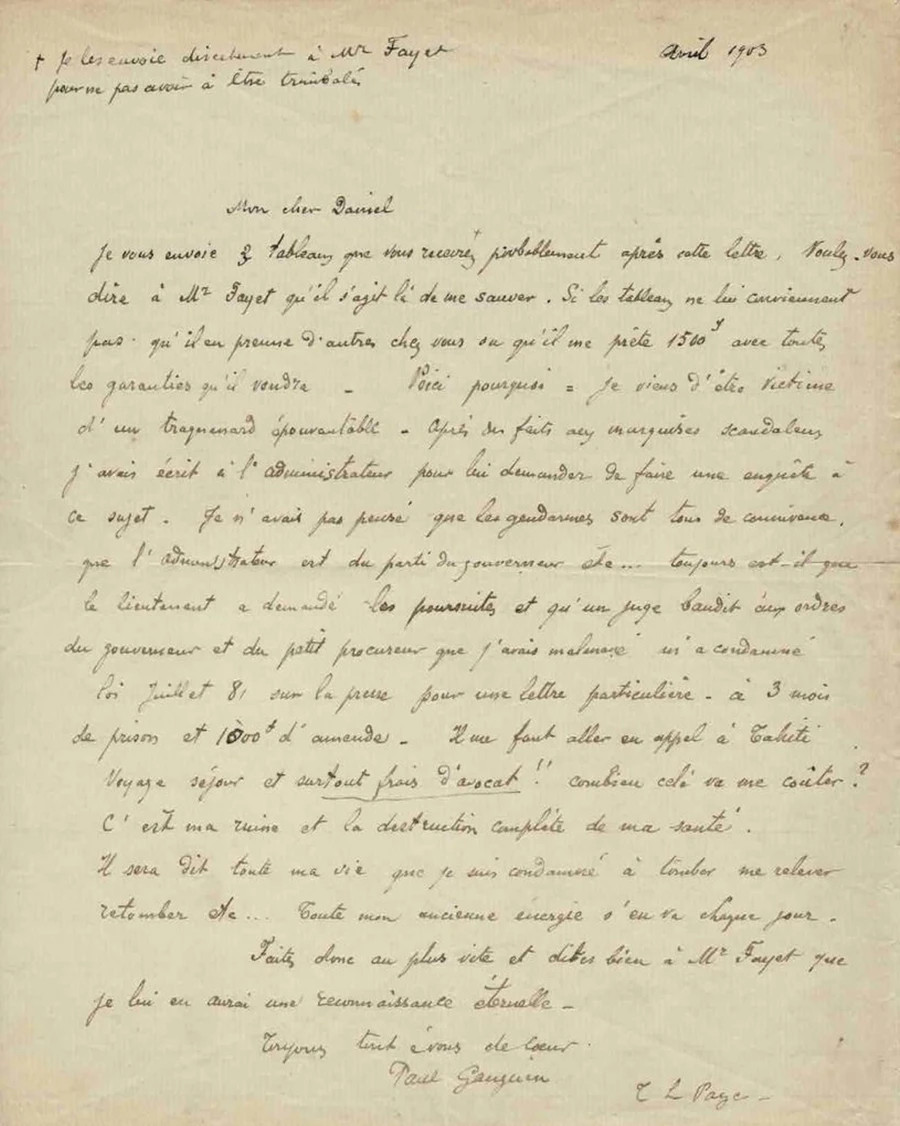 + Je les envoie directement à Mr Fayet
pour ne pas avoir à être trimbalés
Avril 1903
Mon cher Daniel
Je vous envoie 3 tableaux que vous recevrez + probablement après cette lettre. Voulez-vous
dire à Mr Fayet qu'il s'agit là de me sauver. Si les tableaux ne lui conviennent
pas qu'il en prenne d'autres chez vous ou qu'il me prête 1500f avec toutes
les garanties qu'il voudra - Voici pourquoi = Je viens d'être victime
d'un traquenard épouvantable - Après des faits aux marquises scandaleux
j'avais écrit à l'administrateur pour lui demander de faire une enquête à
ce sujet. Je n'avais pas pensé que les gendarmes sont tous de connivence,
que l'administrateur est du parti du gouverneur etc... toujours est-il que
le lieutenant a demandé les poursuites et qu'un juge bandit aux ordres
du gouverneur et du petit procureur que j'avais malmené m'a condamné
loi Juillet 81 sur la presse pour une lettre particulière - à 3 mois
de prison et 1000f d'amende - Il me faut aller en appel à Tahiti
Voyage séjour et surtout frais d'avocat !! combien celà va me coûter ?
C'est ma ruine et la destruction complète de ma santé.
Il sera dit toute ma vie que je suis condamné à tomber me relever
retomber etc... Toute mon ancienne énergie s'en va chaque jour.
Faites donc au plus vite et dites bien à Mr Fayet que
je lui en aurai une reconnaissance éternelle -
Toujours tout à vous de Cœur.
Paul Gauguin
T L Page -